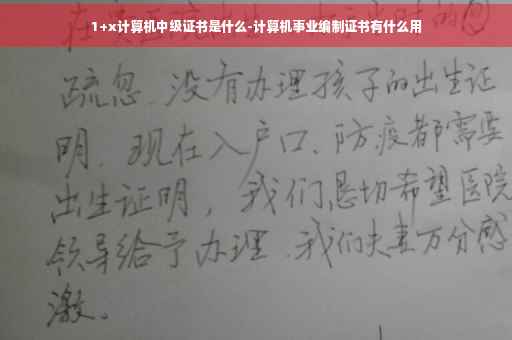 1+x计算机中级证书是什么-计算机事业编制证书有什么用
疏忽、没有办理孩子的出生证
明、现在入户口、防疫都需要
出生证明，我们恳切希望医院
领导给予办理、我们夫妻万分感
激。